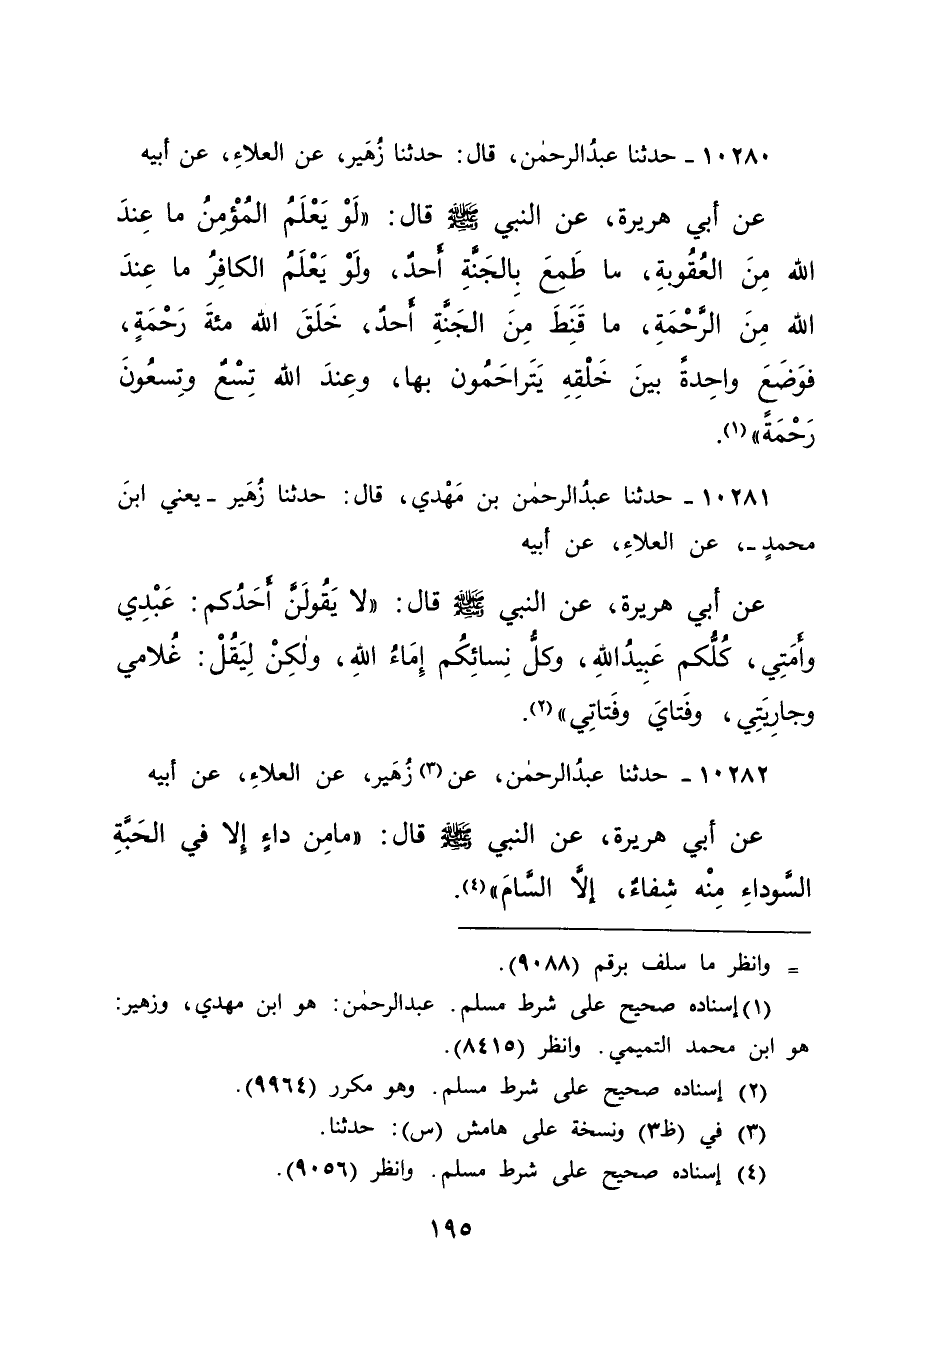 ١٠٢٨٠ ـ حدثنا عبدُالرحمٰن، قال: حدثنا زُهَير، عن العلاءِ، عن أبيه
عن أبي هريرة، عن النبي ﷺ قال: «لَوْ يَعْلَمُ المُؤْمِنُ ما عِندَ
الله مِنَ العُقُوبةِ، ما طَمِعَ بِالجَنَّةِ أَحدٌ، ولَوْ يَعْلَمُ الكافِرُ ما عِندَ
الله مِنَ الرَّحْمَةِ، ما قَنَطَ مِنَ الجَنَّةِ أَحدٌ، خَلَقَ الله مئةَ رَحْمَةٍ،
فوَضَعَ واحِدةً بينَ خَلْقِهِ يَتَراحَمُون بها، وعِندَ الله تِسْعٌ وتِسعُونَ
رَحْمَةً»(١).
١٠٢٨١ ـ حدثنا عبدُالرحمٰن بن مَهْدي، قال: حدثنا زُهَير ـ يعني ابنَ
محمدٍ ـ، عن العلاءِ، عن أبيه
عن أبي هريرة، عن النبي ﷺ قال: «لا يَقُولَنَّ أَحَدُكم: عَبْدِي
وأَمَتِي، كُلُّكم عَبِيدُاللهِ، وكلُّ نِسائِكُم إِمَاءُ اللهِ، ولٰكِنْ لِيَقُلْ: غُلامي
وجارِيَتِي، وفَتايَ وفَتاتِي»(٢).
١٠٢٨٢ ـ حدثنا عبدُالرحمٰن، عن(٣) زُهَير، عن العلاءِ، عن أبيه
عن أبي هريرة، عن النبي ﷺ قال: «مامِن داءٍ إِلا في الحَبَّةِ
السَّوداءِ مِنْه شِفاءٌ، إلَّا السَّامَ»(٤).
= وانظر ما سلف برقم (٩٠٨٨).
(١) إسناده صحيح على شرط مسلم. عبدالرحمٰن: هو ابن مهدي، وزهير:
هو ابن محمد التميمي. وانظر (٨٤١٥).
(٢) إسناده صحيح على شرط مسلم. وهو مكرر (٩٩٦٤).
(٣) في (ظ٣) ونسخة على هامش (س): حدثنا.
(٤) إسناده صحيح على شرط مسلم. وانظر (٩٠٥٦).
١٩٥